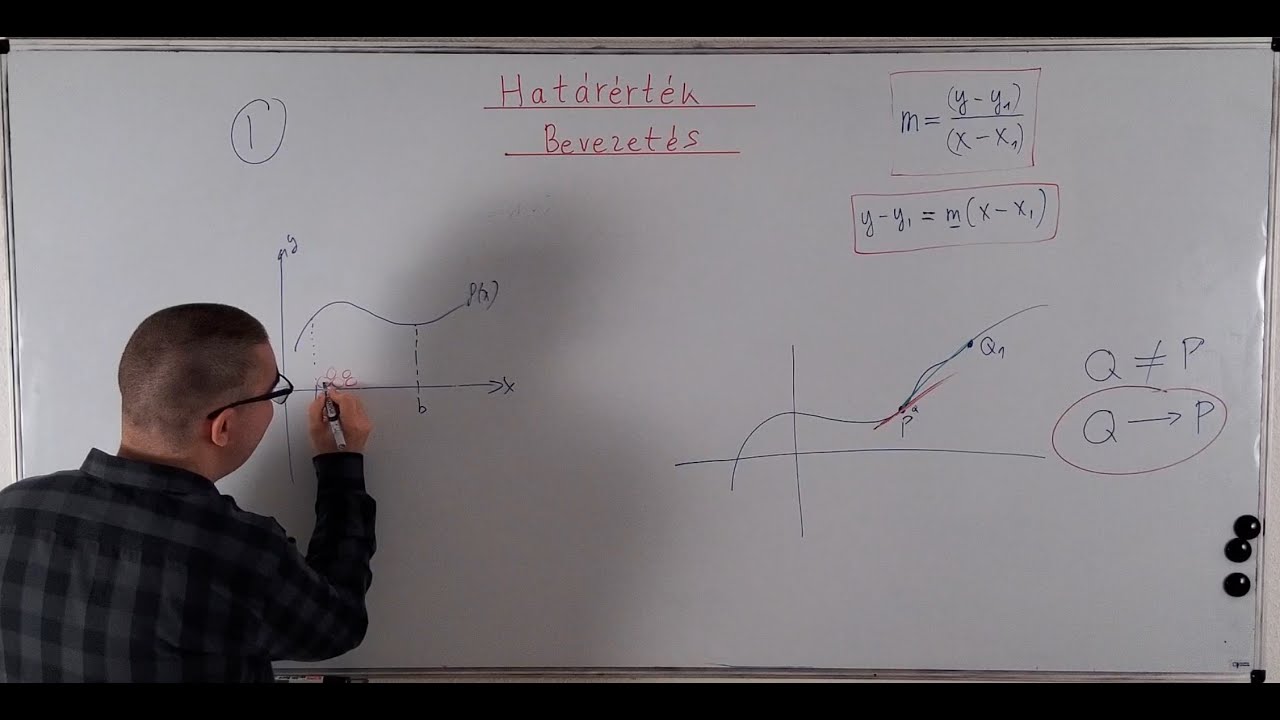 Határérték
Bevezetés
1
m = (y - y₁) / (x - x₁)
y - y₁ = m(x - x₁)
y
f(x)
x
b
Q₁
P
Q ≠ P
Q → P